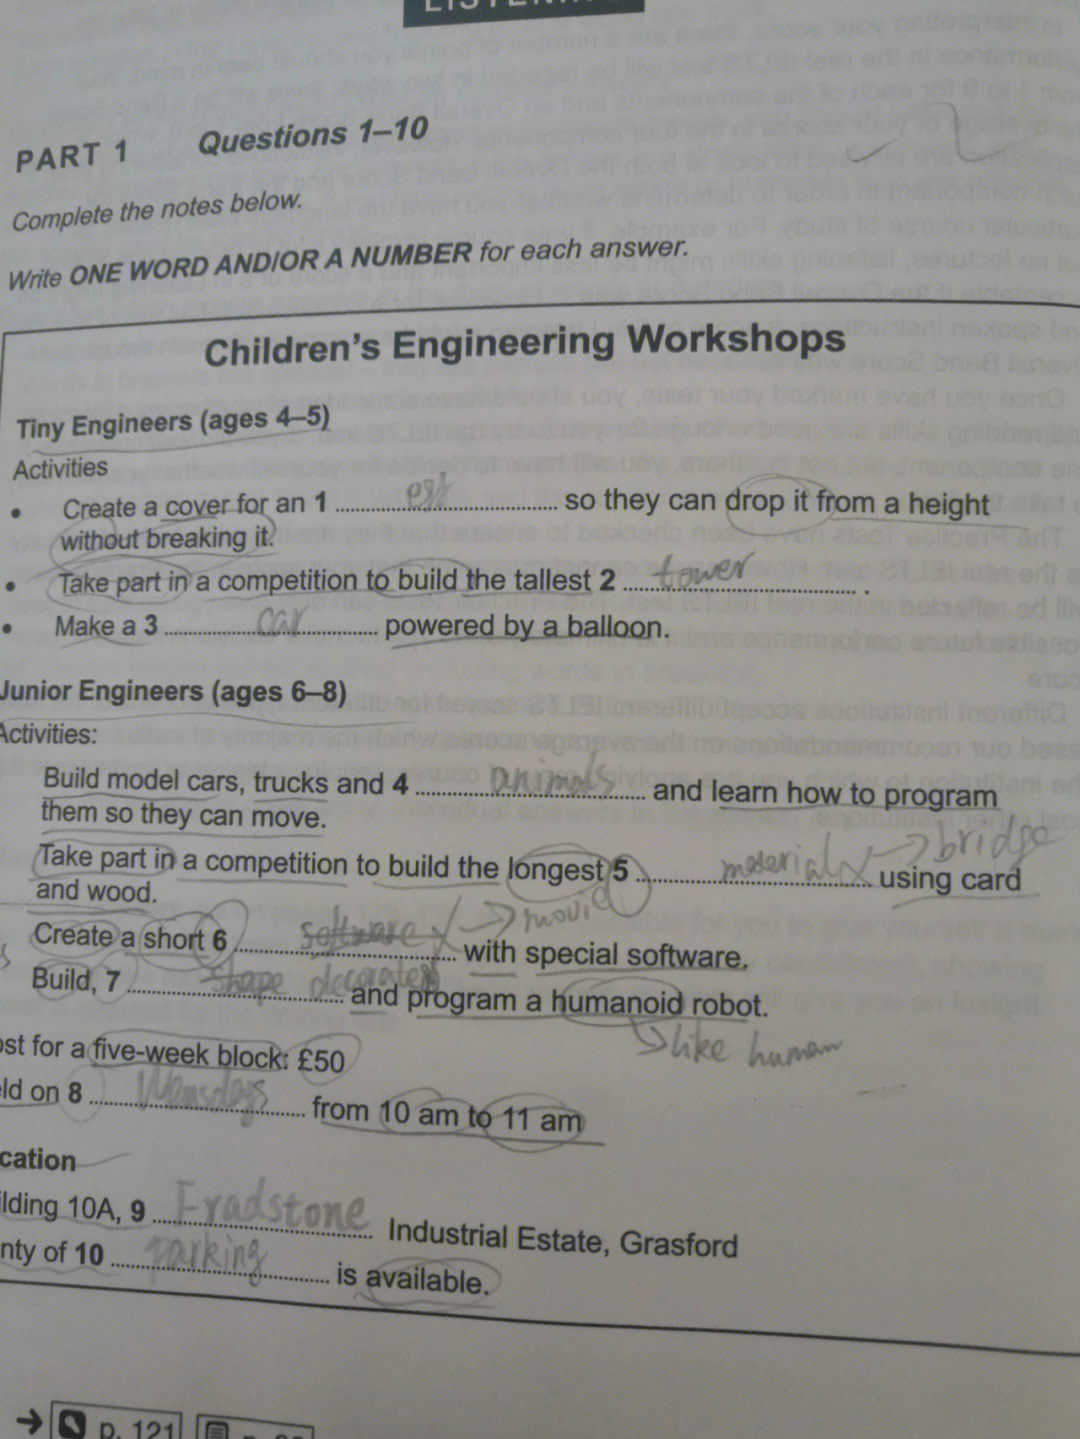 PART 1 Questions 1–10
Complete the notes below.
Write ONE WORD AND/OR A NUMBER for each answer.
Children's Engineering Workshops
Tiny Engineers (ages 4–5)
Activities
• Create a cover for an 1 ........ so they can drop it from a height
without breaking it.
• Take part in a competition to build the tallest 2 tower .
• Make a 3 car powered by a balloon.
Junior Engineers (ages 6–8)
Activities:
Build model cars, trucks and 4 animals and learn how to program
them so they can move.
Take part in a competition to build the longest 5 material x → bridge using card
and wood.
Create a short 6 software x → movie with special software.
Build, 7 shape and program a humanoid robot.
→ like human
for a five-week block: £50
on 8 Wensdays from 10 am to 11 am
10A, 9 Fradstone Industrial Estate, Grasford
of 10 parking is available.
→ p. 121